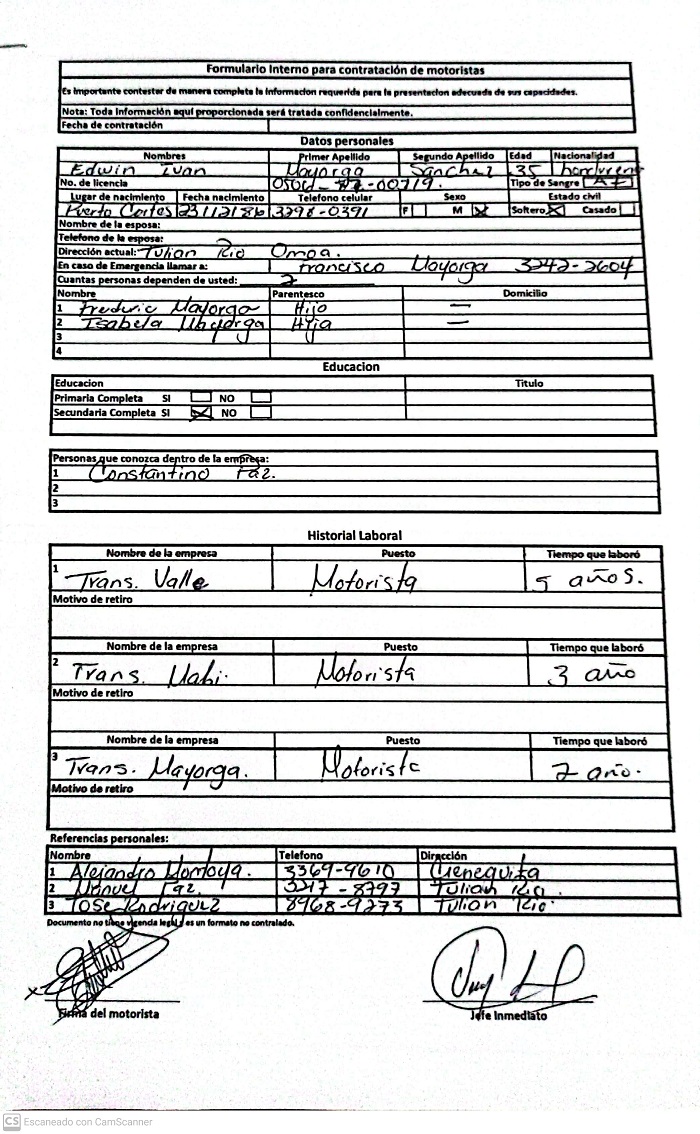 Formulario Interno para contratación de motoristas
Es importante contestar de manera completa la informacion requerida para la presentacion adecuada de sus capacidades.
Nota: Toda información aquí proporcionada será tratada confidencialmente.
Fecha de contratación
Datos personales
Nombres Primer Apellido Segundo Apellido Edad Nacionalidad
Edwin Ivan Mayorga Sanchez 35
No. de licencia Tipo de Sangre
Lugar de nacimiento Fecha nacimiento Telefono celular Sexo Estado civil
Puerto Cortes 3298-0391 F M Soltero Casado
Nombre de la esposa:
Telefono de la esposa:
Dirección actual: Tulian Rio Omoa.
En caso de Emergencia llamar a: Francisco Mayorga 3242-2604
Cuantas personas dependen de usted: 2
Nombre Parentesco Domicilio
1 Frederic Mayorga Hijo —
2 Isabela Mayorga Hija —
3
4
Educacion
Educacion Titulo
Primaria Completa SI NO
Secundaria Completa SI NO
Personas que conozca dentro de la empresa:
1 Constantino Paz.
2
3
Historial Laboral
Nombre de la empresa Puesto Tiempo que laboró
1 Trans. Valle Motorista 5 años.
Motivo de retiro
Nombre de la empresa Puesto Tiempo que laboró
2 Trans. Motorista 3 año
Motivo de retiro
Nombre de la empresa Puesto Tiempo que laboró
3 Trans. Mayorga. Motorista año.
Motivo de retiro
Referencias personales:
Nombre Telefono Dirección
1 Alejandro Montoya. 3369-9610 Cieneguita
2 Manuel Paz. 3217-8797 Tulian Rio.
3 Jose Rodriguez 8968-9273 Tulian Rio.
Documento no tiene vigencia legal y es un formato no contralado.
Firma del motorista Jefe Inmediato
CS Escaneado con CamScanner